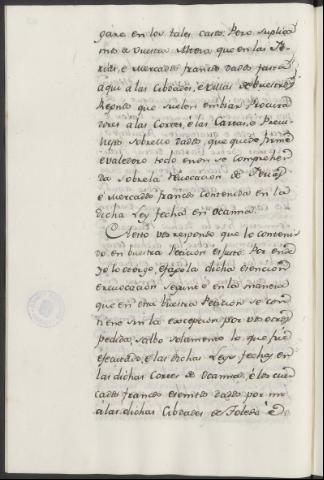 gaxa en los tales casos. Pero suplica
mos a vuestra Alteza que en las Fe-
rias, e Mercados francos dados fasta
aqui a las Cibdades, e villas de vuestros
Regnos que suelen embiar Procura
dores a las Cortes, é las Cartas, é Previ
llejos sobrello dados, que quede firme
e valedero todo en non se comprehen
da sobre la Revocacion de Ferias,
e Mercados francos contenida en la
dicha Ley fecha en Ocanna.
A esto vos respondo que lo conteni
do en buestra Peticion es justo. Por ende
yo lo otorgo, é fago la dicha esencion
e revocacion segund é en la manera
que en esta buestra Peticion se con
tiene sin la excepcion por vosotros
pedida, salbo solamente lo que fue
esecutado, é las dichas Leyes fechas en
las dichas Cortes de Ocanna, é los mer
cados francos esentos dados por mi
a las dichas Cibdades de Toledo é de